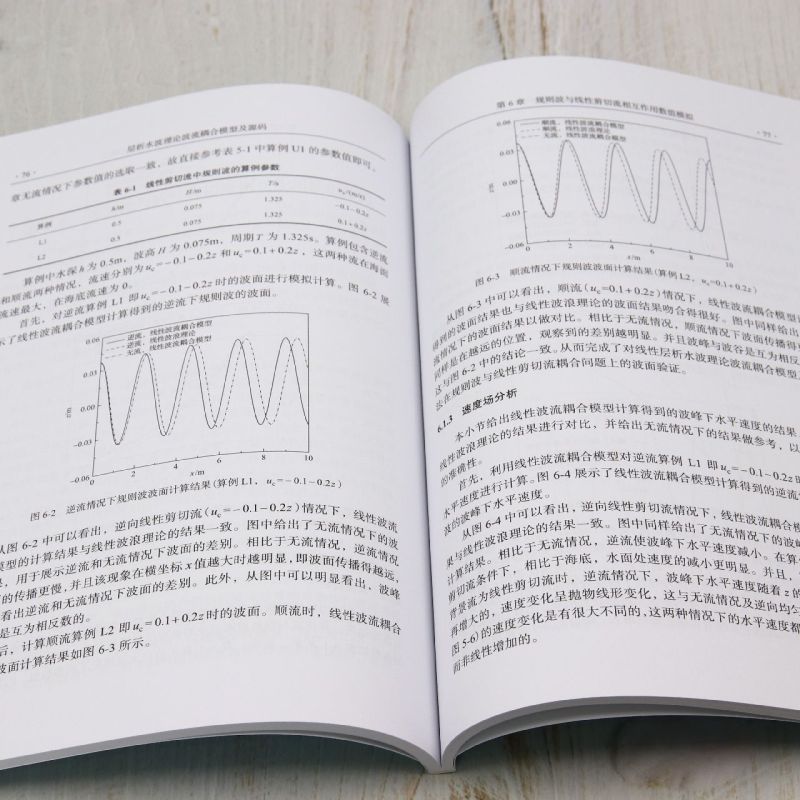 · 76 ·
层析水波理论波流耦合模型及源码
章无流情况下参数值的选取一致，故直接参考表 5-1 中算例 U1 的参数值即可。
表 6-1 线性剪切流中规则波的算例参数
算例 h/m H/m T/s uc/(m/s)
L1 0.5 0.075 1.325 −0.1−0.2z
L2 0.5 0.075 1.325 0.1+0.2z
算例中水深 h 为 0.5m，波高 H 为 0.075m，周期 T 为 1.325s。算例包含逆流
和顺流两种情况，流速分别为 uc=−0.1−0.2z 和 uc=0.1+0.2z，这两种流在海面
流速最大，在海底流速为 0。
首先，对逆流算例 L1 即 uc=−0.1−0.2z 时的波面进行模拟计算。图 6-2 展
示了线性波流耦合模型计算得到的逆流下规则波的波面。
逆流，线性波流耦合模型
逆流，线性波浪理论
无流，线性波流耦合模型
0.06
0.03
z/m
−0.03
−0.06
0 2 4 6 8 10
x/m
图 6-2 逆流情况下规则波波面计算结果（算例 L1，uc=−0.1−0.2z）
从图 6-2 中可以看出，逆向线性剪切流（uc=−0.1−0.2z）情况下，线性波流
模型的计算结果与线性波浪理论的结果一致。图中给出了无流情况下的波
，用于展示逆流和无流情况下波面的差别。相比于无流情况，逆流情况
的传播更慢，并且该现象在横坐标 x 值越大时越明显，即波面传播得越远，
看出逆流和无流情况下波面的差别。此外，从图中可以明显看出，波峰
是互为相反数的。
后，计算顺流算例 L2 即 uc=0.1+0.2z 时的波面。顺流时，线性波流耦合
波面计算结果如图 6-3 所示。
第 6 章 规则波与线性剪切流相互作用数值模拟
· 77 ·
顺流，线性波流耦合模型
顺流，线性波浪理论
无流，线性波流耦合模型
0.06
0.03
z/m
−0.03
−0.06
0 2 4 6 8 10
x/m
图 6-3 顺流情况下规则波波面计算结果（算例 L2，uc=0.1+0.2z）
从图 6-3 中可以看出，顺流（uc=0.1+0.2z）情况下，线性波流耦合模型
得到的波面结果也与线性波浪理论的波面结果吻合得很好。图中同样给出
流情况下的波面结果以做对比。相比于无流情况，顺流情况下波面传播得
同样是在越远的位置，观察到的差别越明显。并且波峰与波谷是互为相反
这与图 6-2 中的结论一致。从而完成了对线性层析水波理论波流耦合模型
法在规则波与线性剪切流耦合问题上的波面验证。
6.1.3 速度场分析
本小节给出线性波流耦合模型计算得到的波峰下水平速度的结果
线性波浪理论的结果进行对比，并给出无流情况下的结果做参考，以
的准确性。
首先，利用线性波流耦合模型对逆流算例 L1 即 uc=−0.1−0.2z 时
水平速度进行计算。图 6-4 展示了线性波流耦合模型计算得到的逆流
波的波峰下水平速度。
从图 6-4 中可以看出，逆向线性剪切流情况下，线性波流耦合
果与线性波浪理论的结果一致。图中同样给出了无流情况下的波峰
计算结果。相比于无流情况，逆流使波峰下水平速度减小。在算
剪切流条件下，相比于海底，水面处速度的减小更明显。并且，
背景流为线性剪切流时，逆流情况下，波峰下水平速度随着 z 的
再增大的，速度变化呈抛物线形变化，这与无流情况及逆向均匀
图 5-6）的速度变化是有很大不同的，这两种情况下的水平速度都
而非线性增加的。